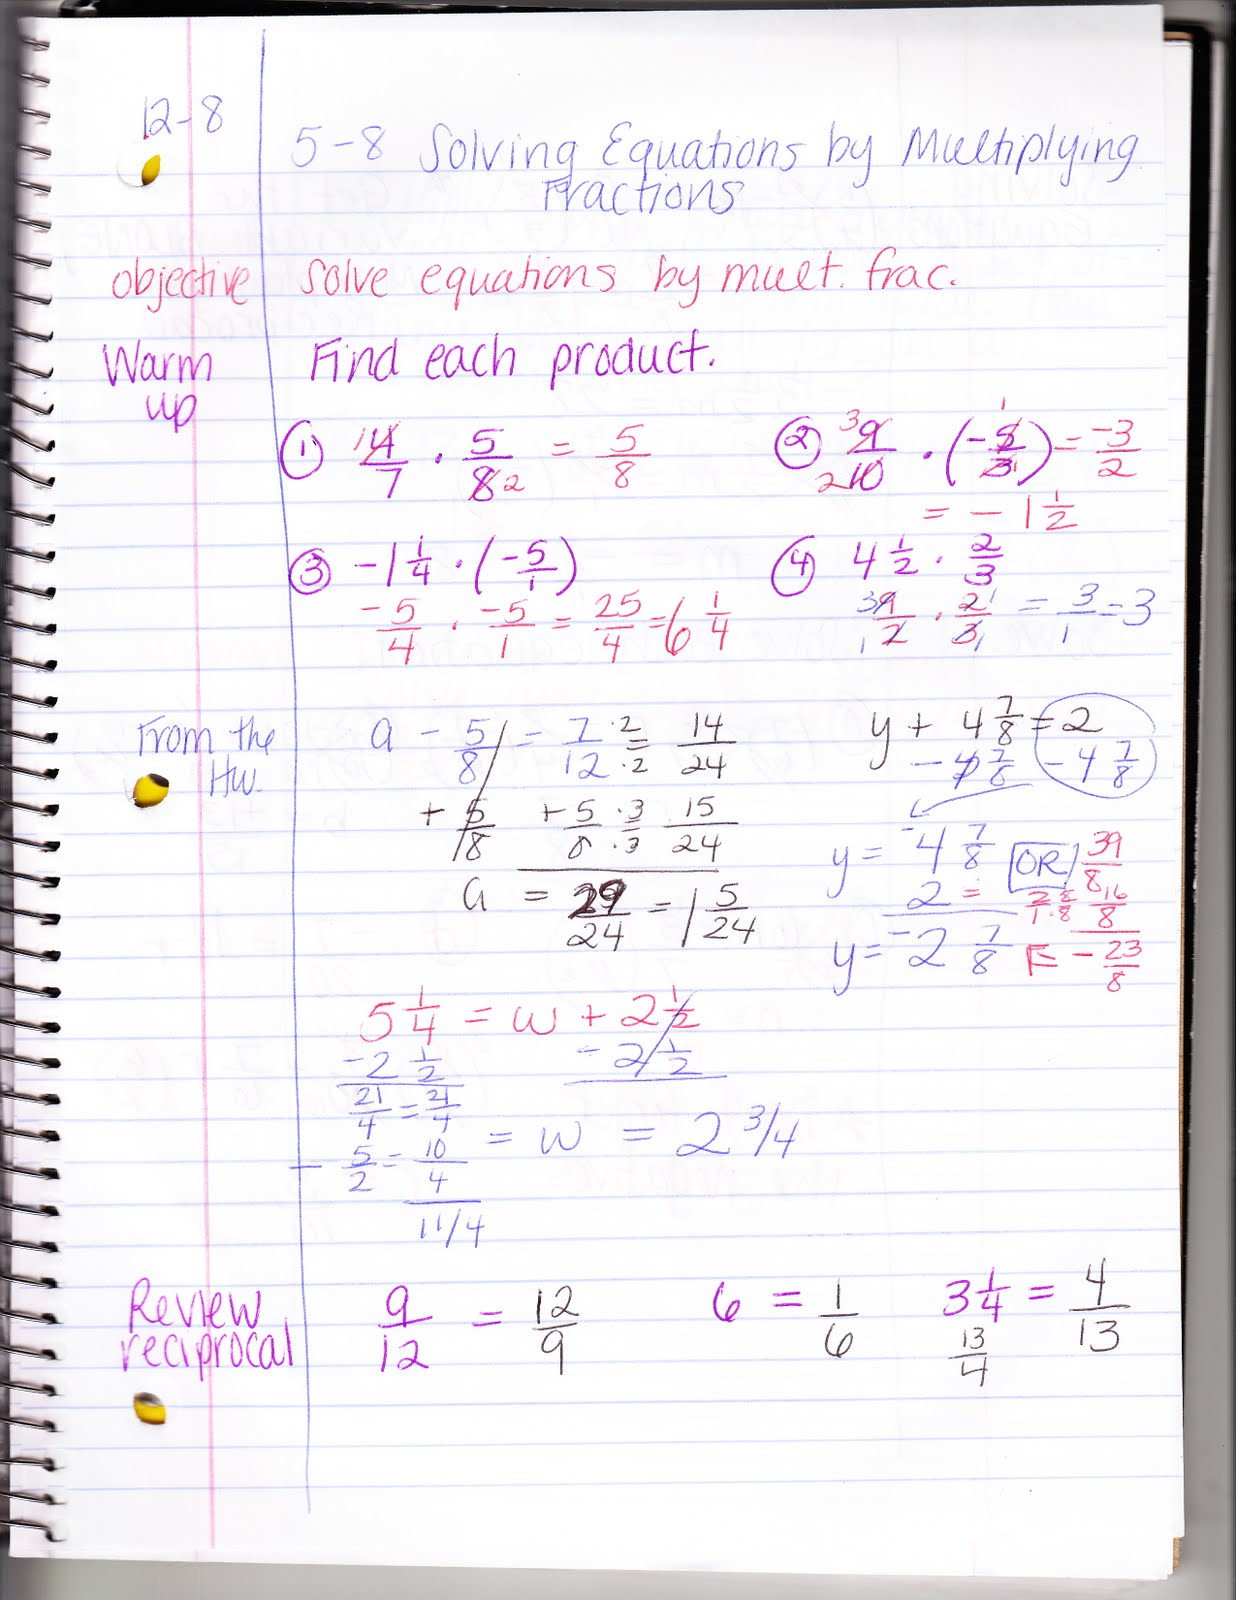 12-8
5-8 Solving Equations by Multiplying
Fractions
Objective solve equations by mult. frac.
Warm up Find each product.
① 4/7 · 5/8 = 5/8
1 2
② 9/10 · (-5/3) = -3/2
3 2 1 1
= -1 1/2
③ -1 1/4 · (-5/1)
-5/4 · -5/1 = 25/4 = 6 1/4
④ 4 1/2 · 2/3
9/2 · 2/3 = 3/1 = 3
3 1 1 1
From the HW.
a - 5/8 = 7/12 · 2/2 = 14/24
+ 5/8 + 5/8 · 3/3 15/24
a = 29/24 = 1 5/24
y + 4 7/8 = 2
- 4 7/8 - 4 7/8
y = -4 7/8 OR 39/8
2 = 2/1 · 8/8 16/8
y = -2 7/8 = - 23/8
5 1/4 = w + 2 1/2
-2 1/2 - 2 1/2
21/4 = 21/4
= w = 2 3/4
- 5/2 = 10/4
11/4
Review reciprocal
9/12 = 12/9
6 = 1/6
3 1/4 = 4/13
13/4